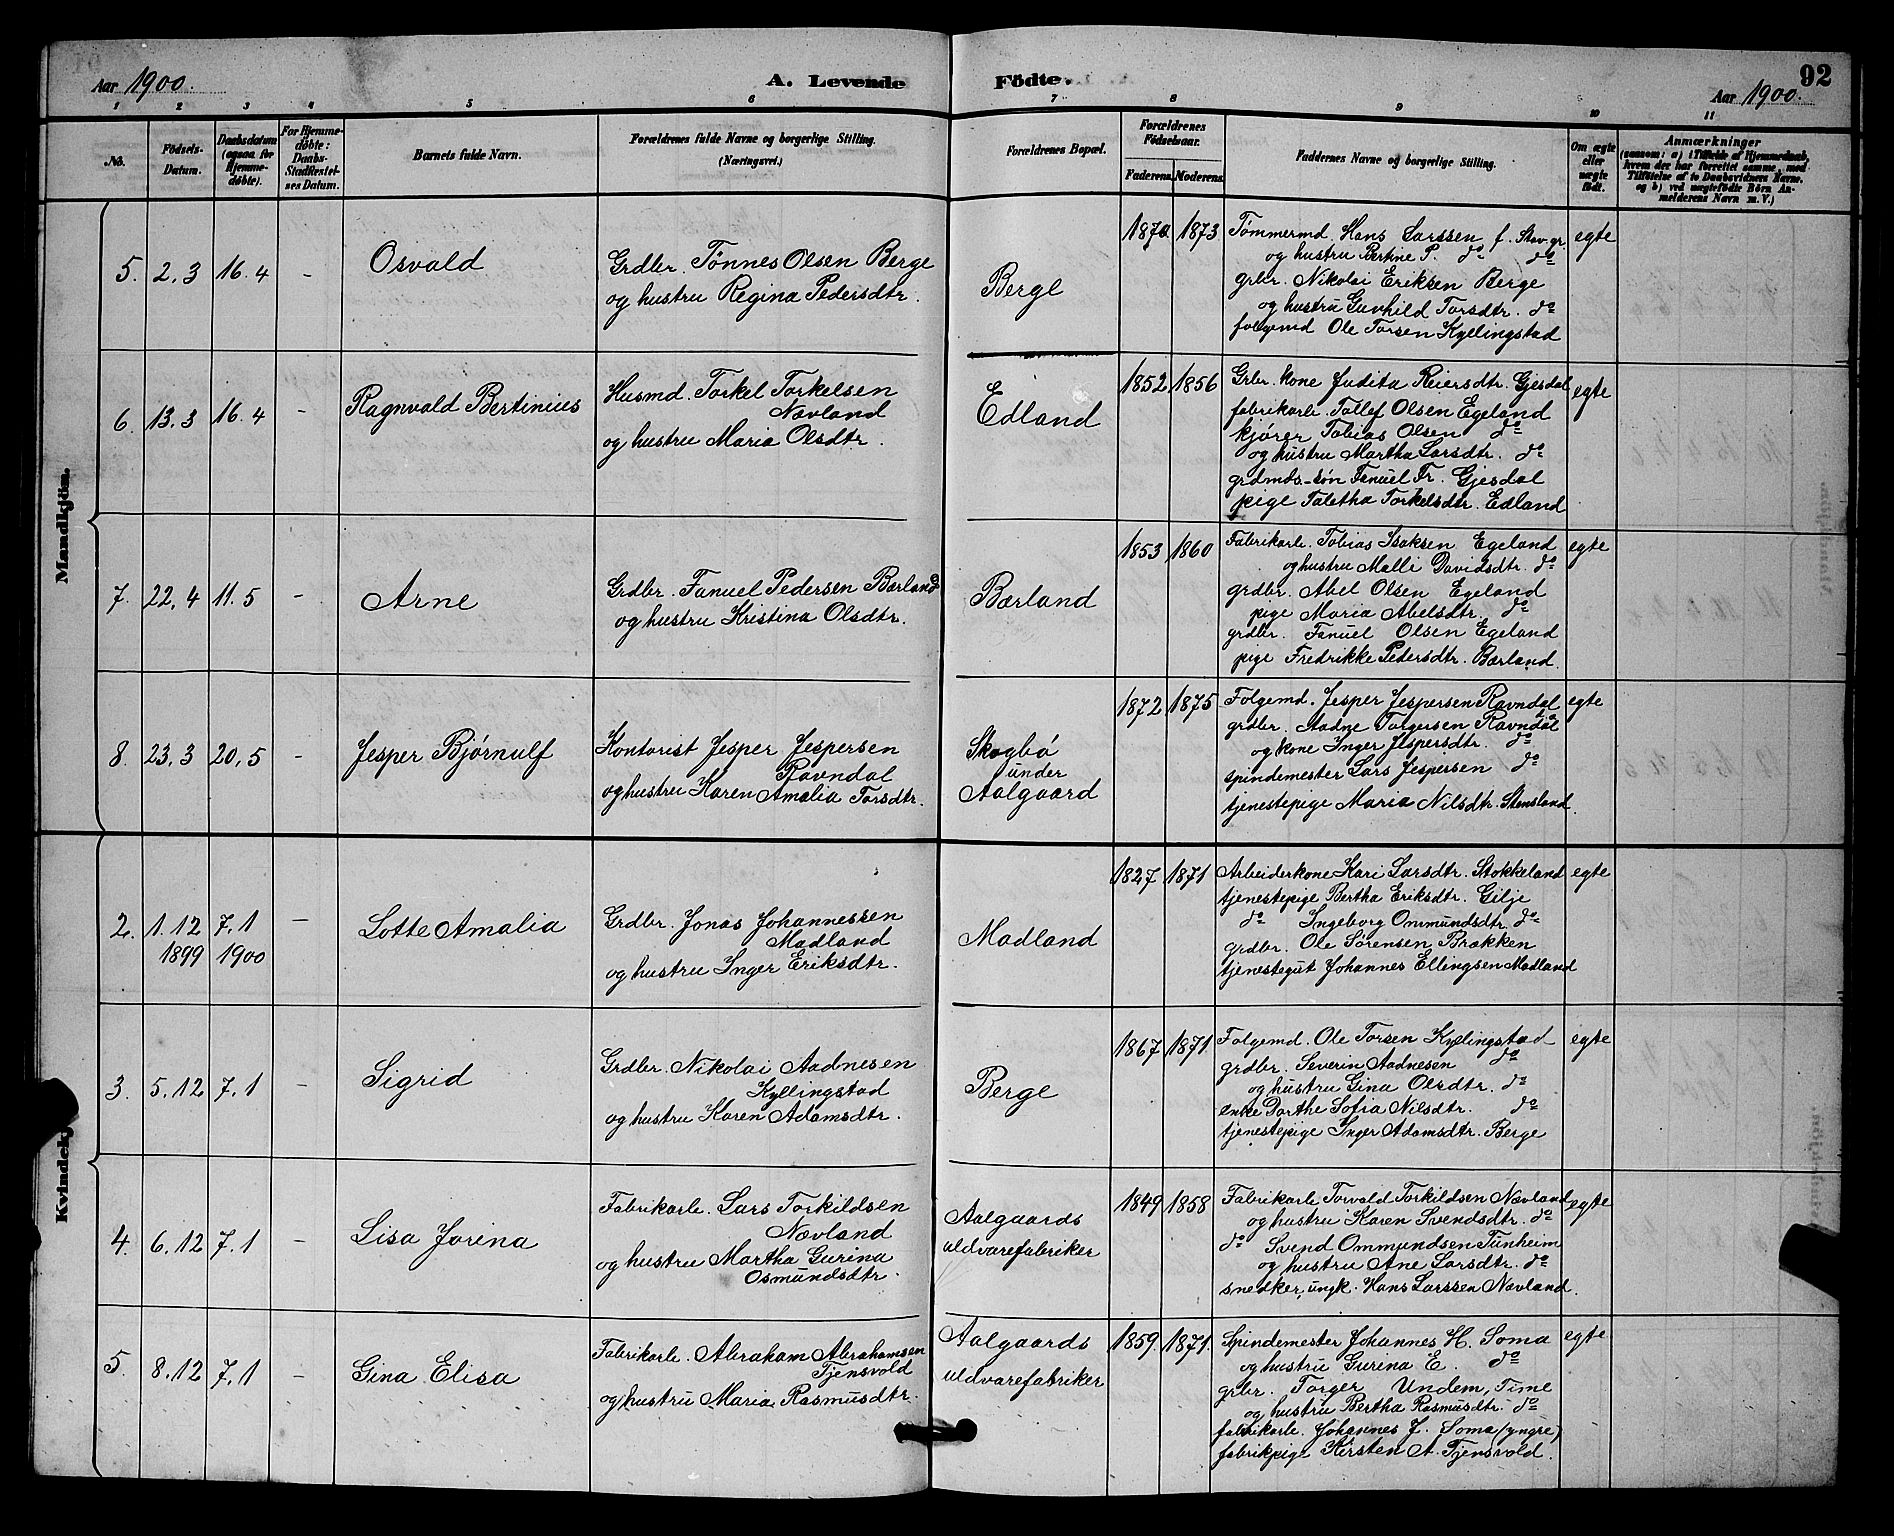 92
Aar 1900.
A. Levende Födte.
Aar 1900.
1 2 3 4 5 6 7 8 9 10 11
No.
Födsels-Datum.
Daabsdatum (ogsaa for Hjemme-döbte).
For Hjemme-döbte: Daabs-Stadfæstel-ses Datum.
Barnets fulde Navn.
Forældrenes fulde Navne og borgerlige Stilling. (Næringsvei.)
Forældrenes Bopæl.
Forældrenes Födselsaar.
Faderens. Moderens.
Faddernes Navne og borgerlige Stilling.
Om ægte eller uægte födt.
Anmærkninger
(saasom: a) i Tilfælde af Hjemmedaab,
hvem der har forrettet samme, med
Tilföielse af to Daabsvidners Navne.
og b) ved uægtefödte Börn An-
melderens Navn m. V.)
Mandkjön.
5. 2,3 16.4 -
Osvald
Grdbr. Tönnes Olsen Berge
og hustru Regina Pedersdtr.
Berge
1870 1873
Tømmermd. Hans Larssen f. Stav.gr.
og hustru Bertine P. do do
grbr. Nikolai Eriksen Berge
og hustru Gunhild Torsdtr. do
folgemd Ole Torsen Kyllingstad
egte
6. 13.3 16.4 -
Ragnvald Bertinius
Husmd. Torkel Torkelsen
Nævland
og hustru Maria Olsdtr.
Edland
1852 1856
Grbr. kone Judita Reiersdtr. Gjesdal
fabrikarb. Tollef Olsen Egeland
kjører Tobias Olsen do
og hustru Martha Larsdtr. do
grdmds-søn Fanuel Tr. Gjesdal
pige Taletha Torkelsdtr. Edland
egte
7. 22,4 11.5 -
Arne
Grdbr. Fanuel Pedersen Bærland
og hustru Kristina Olsdtr.
Bærland
1853 1860
Fabrikarb. Tobias Isaksen Egeland
og hustru Malli Davidsdtr. do
grdbr. Abel Olsen Egeland
pige Maria Abelsdtr. do
grdbr. Fanuel Olsen Egeland
pige Fredrikke Pedersdtr. Bærland
egte
8. 23,3 20,5 -
Jesper Bjørnulf
Kontorist Jesper Jespersen
Ravndal
og hustru Karen Amalia Torsdtr.
Skogbø
under
Aalgaard
1872 1875
Folgemd. Jesper Jespersen Ravndal
grdbr. Aadne Torgersen Ravndal
og kone Inger Jespersdtr. do
spindemester Lars Jespersen do
tjenestepige Maria Nilsdtr. Stensland
egte
Kvindekj
2. 1.12 7.1 -
1899 1900
Lotte Amalia
Grdbr. Jonas Johannessen
Madland
og hustru Inger Eriksdtr.
Madland
1827 1871
Arbeiderkone Kari Larsdtr. Stokkeland
tjenestepige Bertha Eriksdtr. Gilje
do Ingeborg Ommundsdtr. do
grdbr. Ole Sørensen Brækken
tjenestegut Johannes Ellingsen Madland
egte
3. 5.12 7.1 -
Sigrid
Grdbr. Nikolai Aadnesen
Kyllingstad
og hustru Karen Adamsdtr.
Berge
1867 1871.
Folgemd. Ole Torsen Kyllingstad
grdbr. Severin Aadnesen do
og hustru Gina Olsdtr. do
enke Dorthe Sofia Nilsdtr. do
tjenestepige Inger Adamsdtr. Berge
egte
4. 6.12 7.1 -
Lisa Jorina
Fabrikarb. Lars Torkildsen
Nævland
og hustru Martha Gurina
Osmundsdtr.
Aalgaards
uldvarefabriker
1849 1858
Fabrikarb Torvald Torkildsen Nævland
og hustru Karen Svendsdtr. do
do Svend Ommundsen Tunheim
og hustru Ane Larsdtr. do
snedker, ungk. Hans Larssen Nævland.
egte
5. 8.12 7.1 -
Gina Elisa
Fabrikarb. Abraham Abrahamsen
Tjensvold
og hustru Maria Rasmusdtr.
Aalgaards
uldvarefabriker
1859. 1871.
Spindemester Johannes H. Soma
og hustru Gurina E. do
grbr. Torger Undem, Time
og hustru Bertha Rasmusdtr. do
fabrikarb. Johannes J. Soma (yngre)
fabrikpige Kirsten A. Tjensvold.
egte